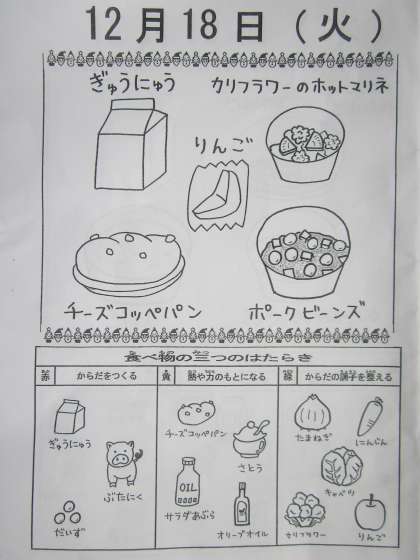 12月18日（火）
ぎゅうにゅう
カリフラワーのホットマリネ
りんご
チーズコッペパン
ポークビーンズ
食べ物の三つのはたらき
赤 からだをつくる 黄 熱や力のもとになる 緑 からだの調子を整える
ぎゅうにゅう
ぶたにく
だいず
チーズコッペパン
さとう
OIL
サラダあぶら
オリーブオイル
たまねぎ
にんじん
キャベツ
カリフラワー
りんご